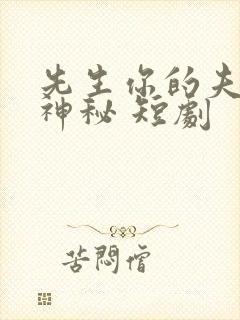 先生你的夫
神秘 短劇
苦悶僧